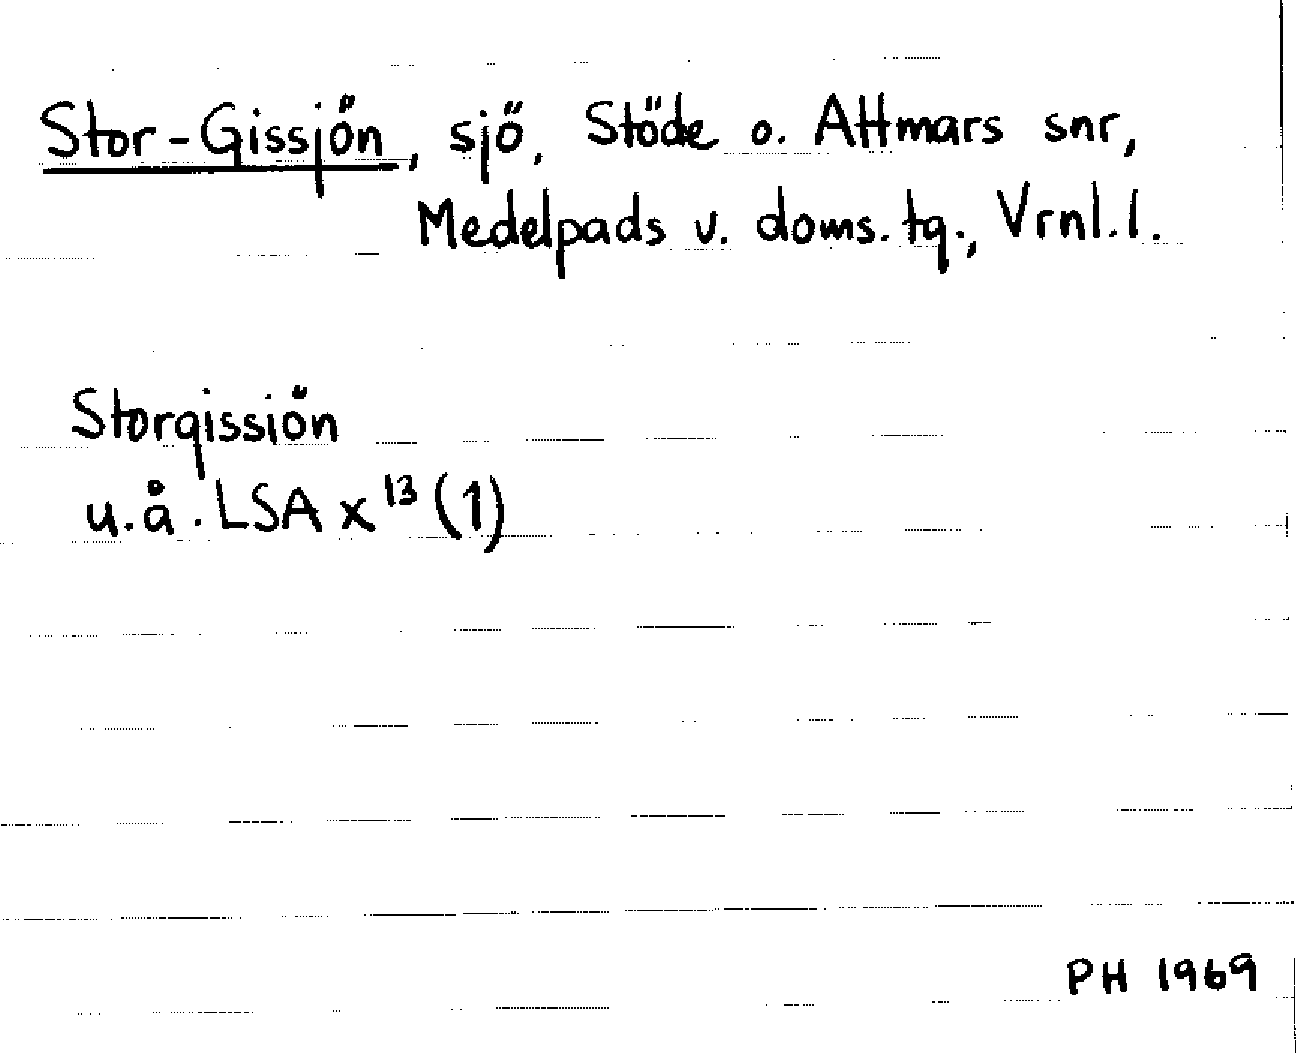 Stor-Gissjön, sjö, Stöde o. Attmars snr,
Medelpads v. doms.tg., Vrnl.l.
Storgissiön
u.å. LSA x¹³(1)
PH 1969